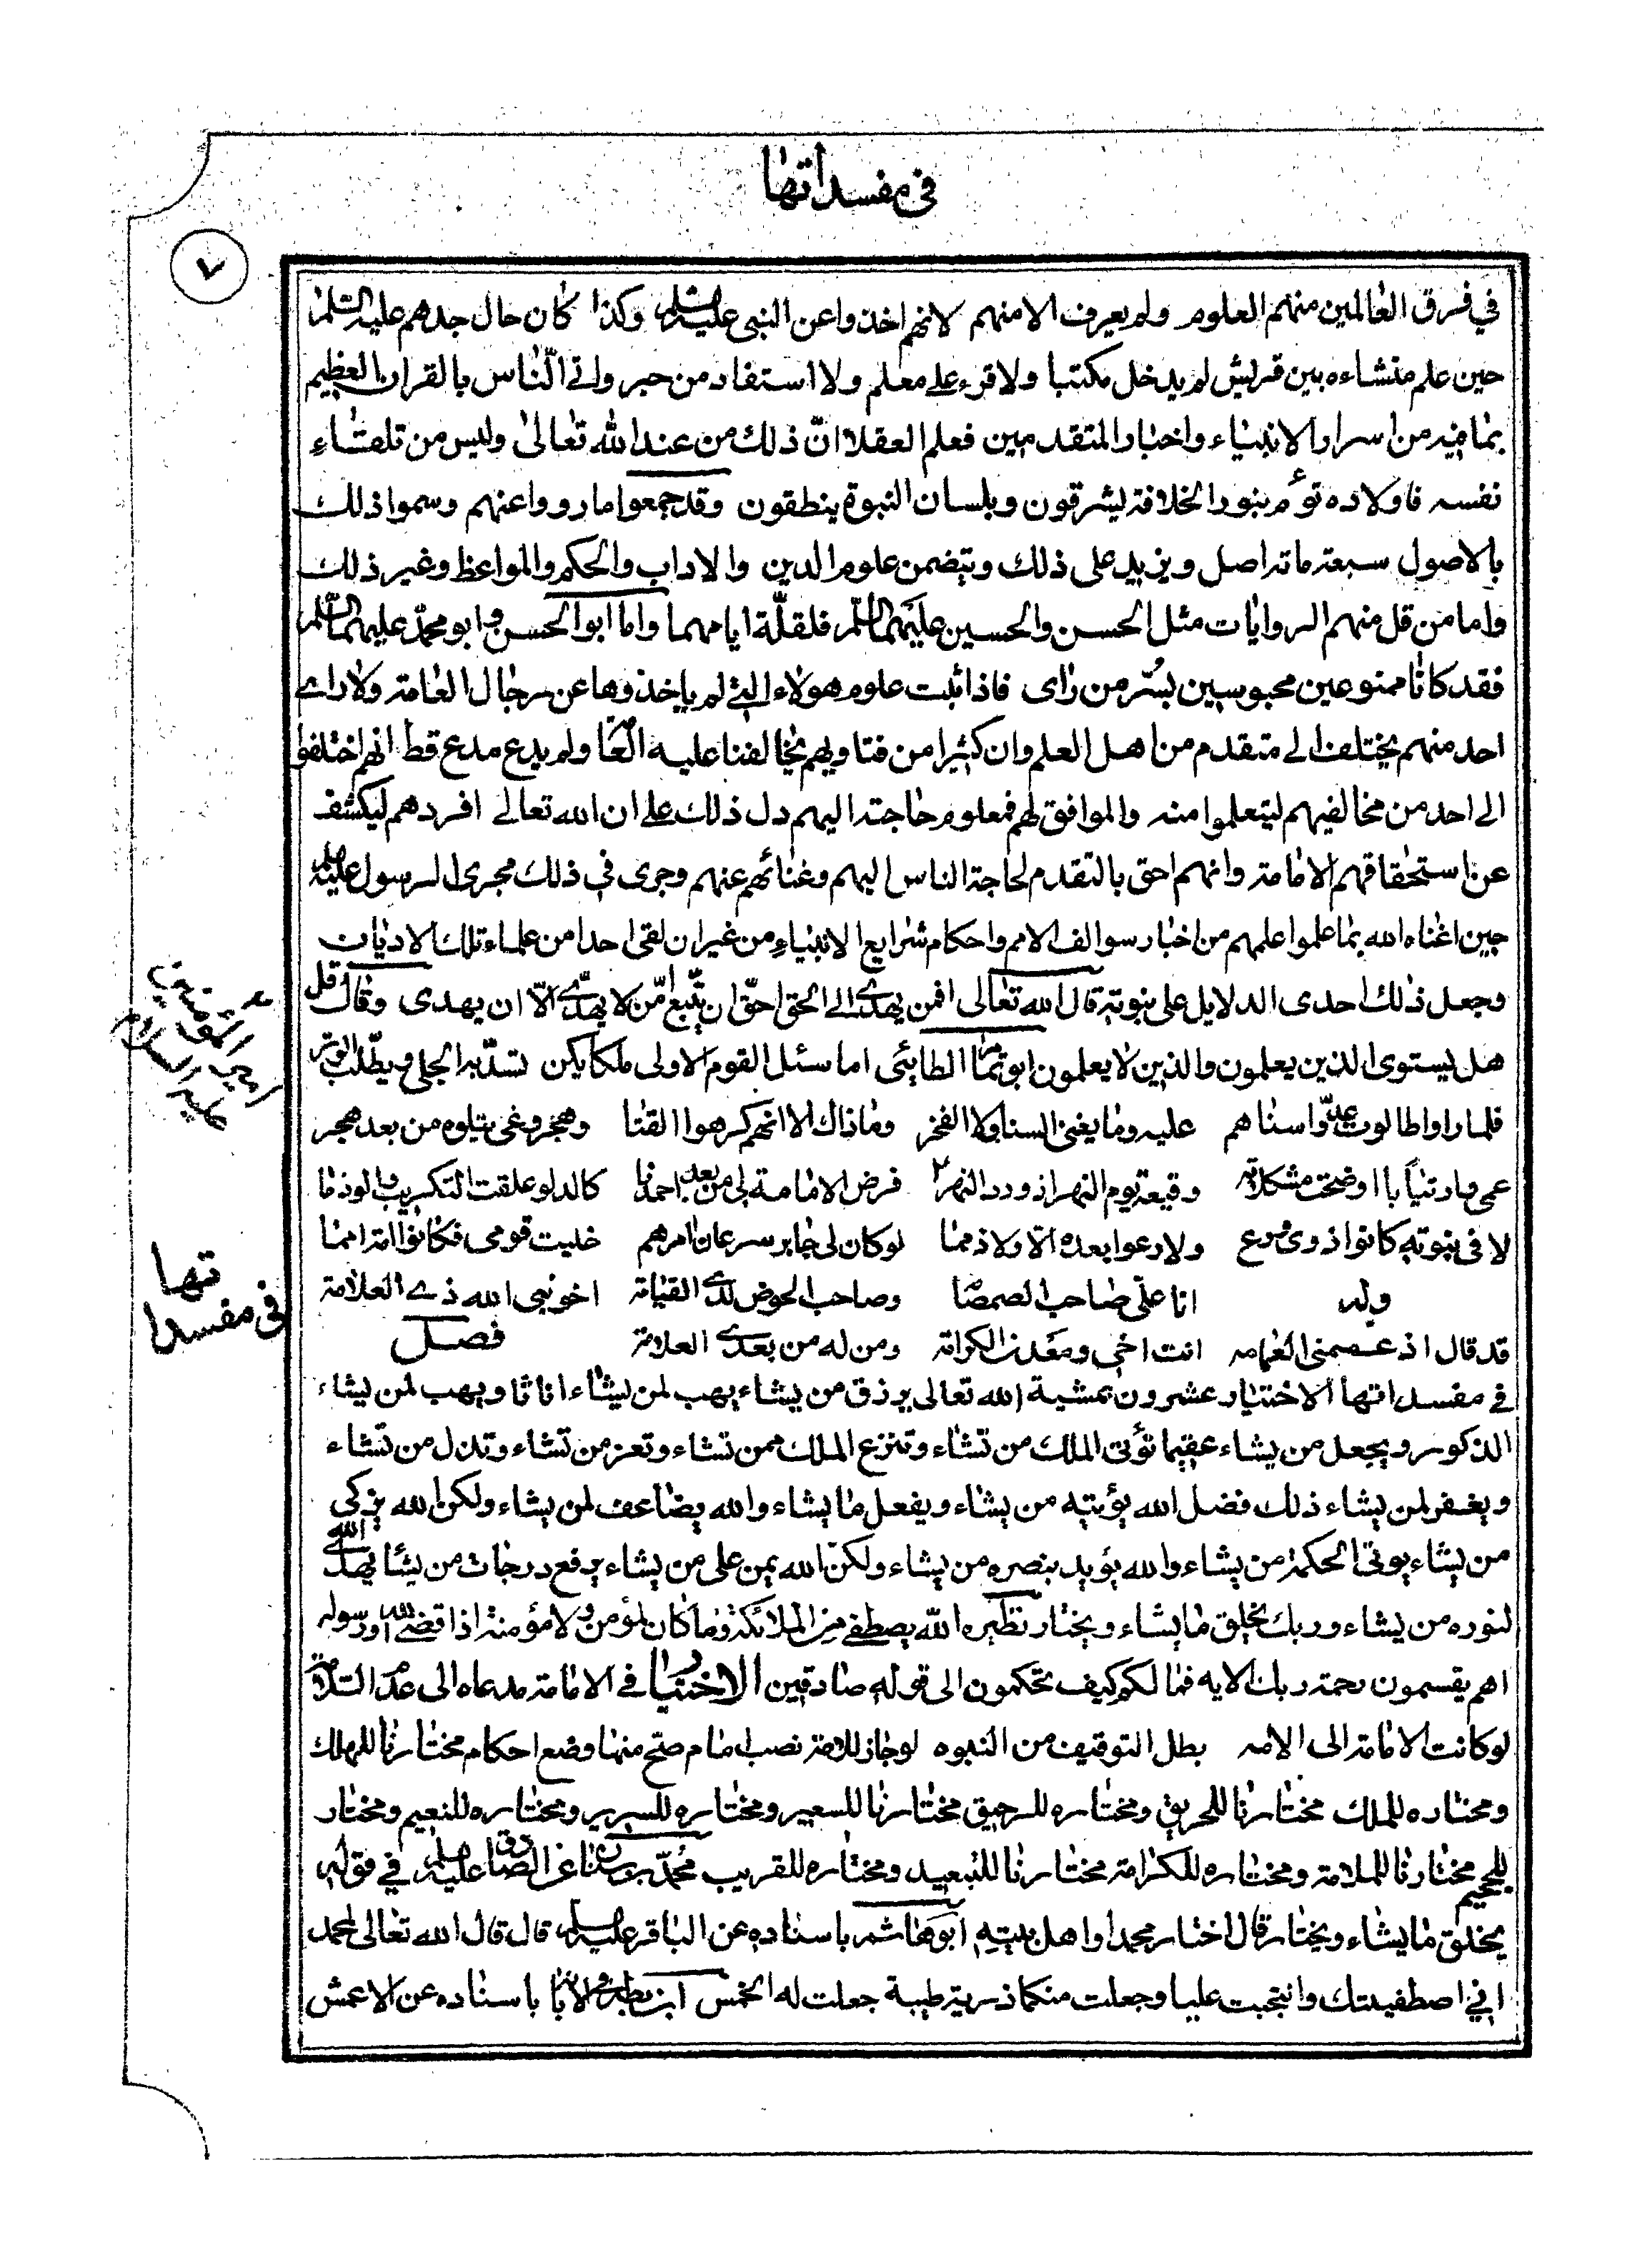 في مفسداتها
٧
في فرق العالمين منهم العلوم ولم يعرف الا منهم لانهم اخذوا عن النبي عليه السلم وكذا كان حال جدهم عليه السلم
حين علم منشاءه بين قريش لم يدخل مكتبا ولا قرء على معلم ولا استفاد من حبر واتى الناس بالقران العظيم
بما فيه من اسرار الانبياء واخبار المتقدمين فعلم العقلا انّ ذلك من عند الله تعالى وليس من تلقاء
نفسه فاولاده توءم بنور الخلافة يشرقون وبلسان النبوة ينطقون وقد جمعوا ما رووا عنهم وسموا ذلك
بالاصول سبعة مائة اصل ويزيد على ذلك ويتضمن علوم الدين والاداب والحكم والمواعظ وغير ذلك
واما من قل منهم الروايات مثل الحسن والحسين عليهما السلم فلقلّة ايامهما واما ابو الحسن وابو محمّد عليهما السلم
فقد كانا ممنوعين محبوسين بسُرّ من راى فاذا ثبت علوم هولاء التي لم ياخذوها عن رجال العامة ولا راى
احد منهم يختلف الى متقدم من اهل العلم وان كثيرا من فتاويهم يخالفنا عليه العامة ولم يدع مدع قط انهم اختلفوا
الى احد من مخالفيهم ليتعلموا منه والموافق لهم فمعلوم حاجته اليهم دل ذلك على ان الله تعالى افردهم ليكشف
عن استحقاقهم الامامة وانهم احق بالتقدم لحاجة الناس اليهم وغنائهم عنهم وجرى في ذلك مجرى الرسول عليه السلم
حين اغناه الله بما علموا علمهم من اخبار سوالف الامم واحكام شرايع الانبياء من غير ان لقى احدا من علماء تلك الاديان
وجعل ذلك احدى الدلايل على نبوته قال الله تعالى افمن يهدى الى الحق احقّ ان يتّبع امّن لا يهدّى الّا ان يهدى وقال قل
هل يستوى الذين يعلمون والذين لا يعلمون ابو تمام الطائى اما سئل القوم الاولى ملكا يكن تسدّ به الجلى ويطّلب الوتر
فلما راوا طالوت عدّوا سناهم عليه وما يغنى السنا ولا الفخر وما ذاك الا انهم كرهوا القنا وهجر وغى يتلوه من بعد هجر
امير المؤمنين عليه السلام
وقيعة يوم النهر اذ ورد النهرا فرض الامامة لى من بعد احمدنا كالدلو علقت التكريب والوذما
لا فى نبوته كانوا ذوى ورع ولا رعوا بعده الا ولا ذمما لو كان لى جابر سرعان امرهم خليت قومى فكانوا امة امما
وله انا علىّ صاحب الصمصا وصاحب الحوض لدى القيامة اخو نبى الله ذى العلامة
فى مفسداتها
قد قال اذ عممنى العمامه انت اخى ومعدن الكرامة ومن له من بعدى العلامة فصل
في مفسداتها الاختيار عشرون بمشية الله تعالى يرزق من يشاء يهب لمن يشاء اناثا ويهب لمن يشاء
الذكور ويجعل من يشاء عقيما تؤتى الملك من تشاء وتنزع الملك ممن تشاء وتعز من تشاء وتذل من تشاء
ويغفر لمن يشاء ذلك فضل الله يؤتيه من يشاء ويفعل ما يشاء والله يضاعف لمن يشاء ولكن الله يزكى
من يشاء يوتى الحكمة من يشاء والله يؤيد بنصره من يشاء ولكنّ الله يمن على من يشاء يرفع درجات من يشا يهدى الله
لنوره من يشاء وربك يخلق ما يشاء ويختار نظيره الله يصطفى من الملائكة وما كان لمؤمن ولا مؤمنة اذا قضى الله ورسوله
اهم يقسمون رحمة ربك الايه فما لكم كيف تحكمون الى قوله صادقين الاختيار في الامامة مدعاه الى
لو كانت الامامة الى الامه بطل التوقيف من النبوه لو جاز للامة نصب امام صح منها وضع احكام مختارنا للهلك
ومختاره للملك مختارنا للحريق ومختاره للرحيق مختارنا للسعير ومختاره للسرير ومختاره للنعيم ومختار
للجحيم مختارنا للملامة ومختاره للكرامة مختارنا للتبعيد ومختاره للقريب محمّد بن سنان عن الصادق عليه السلم في قوله
يخلق ما يشاء ويختار قال اختار محمدا واهل بيته ابو هاشم باسناده عن الباقر عليه السلم قال قال الله تعالى لمحمد
انى اصطفيتك وانتجبت عليا وجعلت منكما ذرية طيبة جعلت له الخمس ابن بطه في الابانة باسناده عن الاعمش